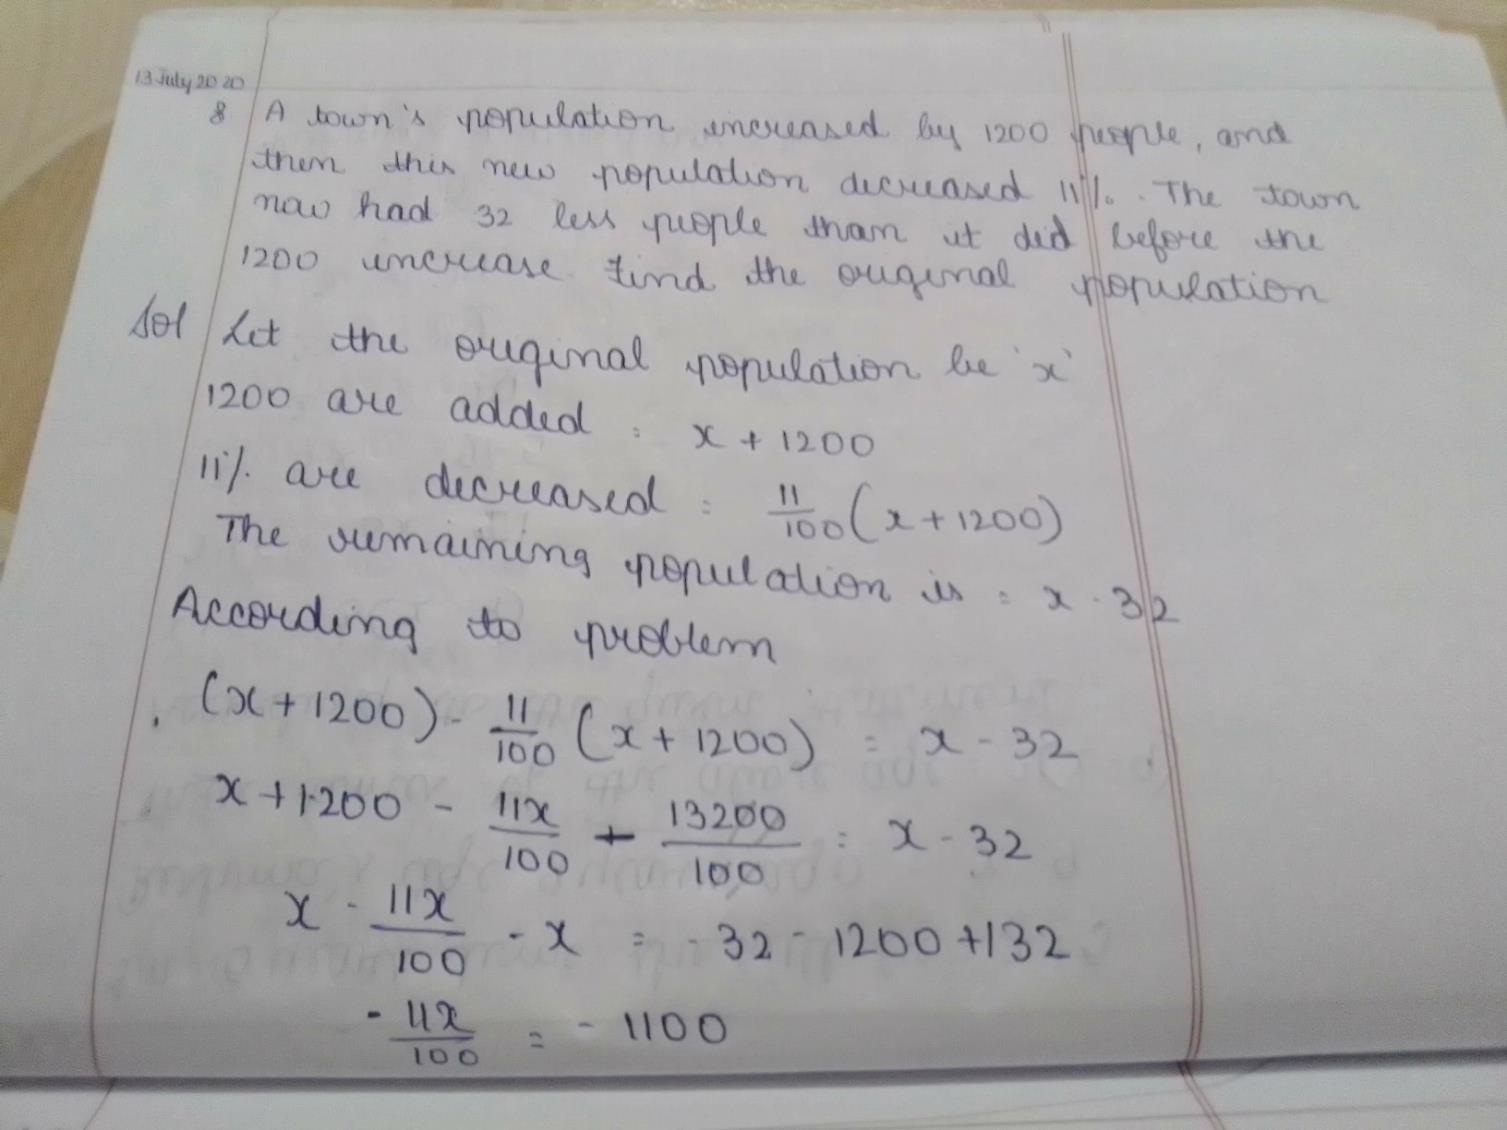 13 July 2020
8 A town's population increased by 1200 people, and
then this new population decreased 11%. The town
now had 32 less people than it did before the
1200 increase. Find the original population
Sol Let the original population be 'x'
1200 are added = x + 1200
11% are decreased = 11/100 (x + 1200)
The remaining population is = x - 32
According to problem
(x + 1200) - 11/100 (x + 1200) = x - 32
x + 1200 - 11x/100 - 13200/100 = x - 32
x - 11x/100 - x = -32 - 1200 + 132
- 11x/100 = - 1100